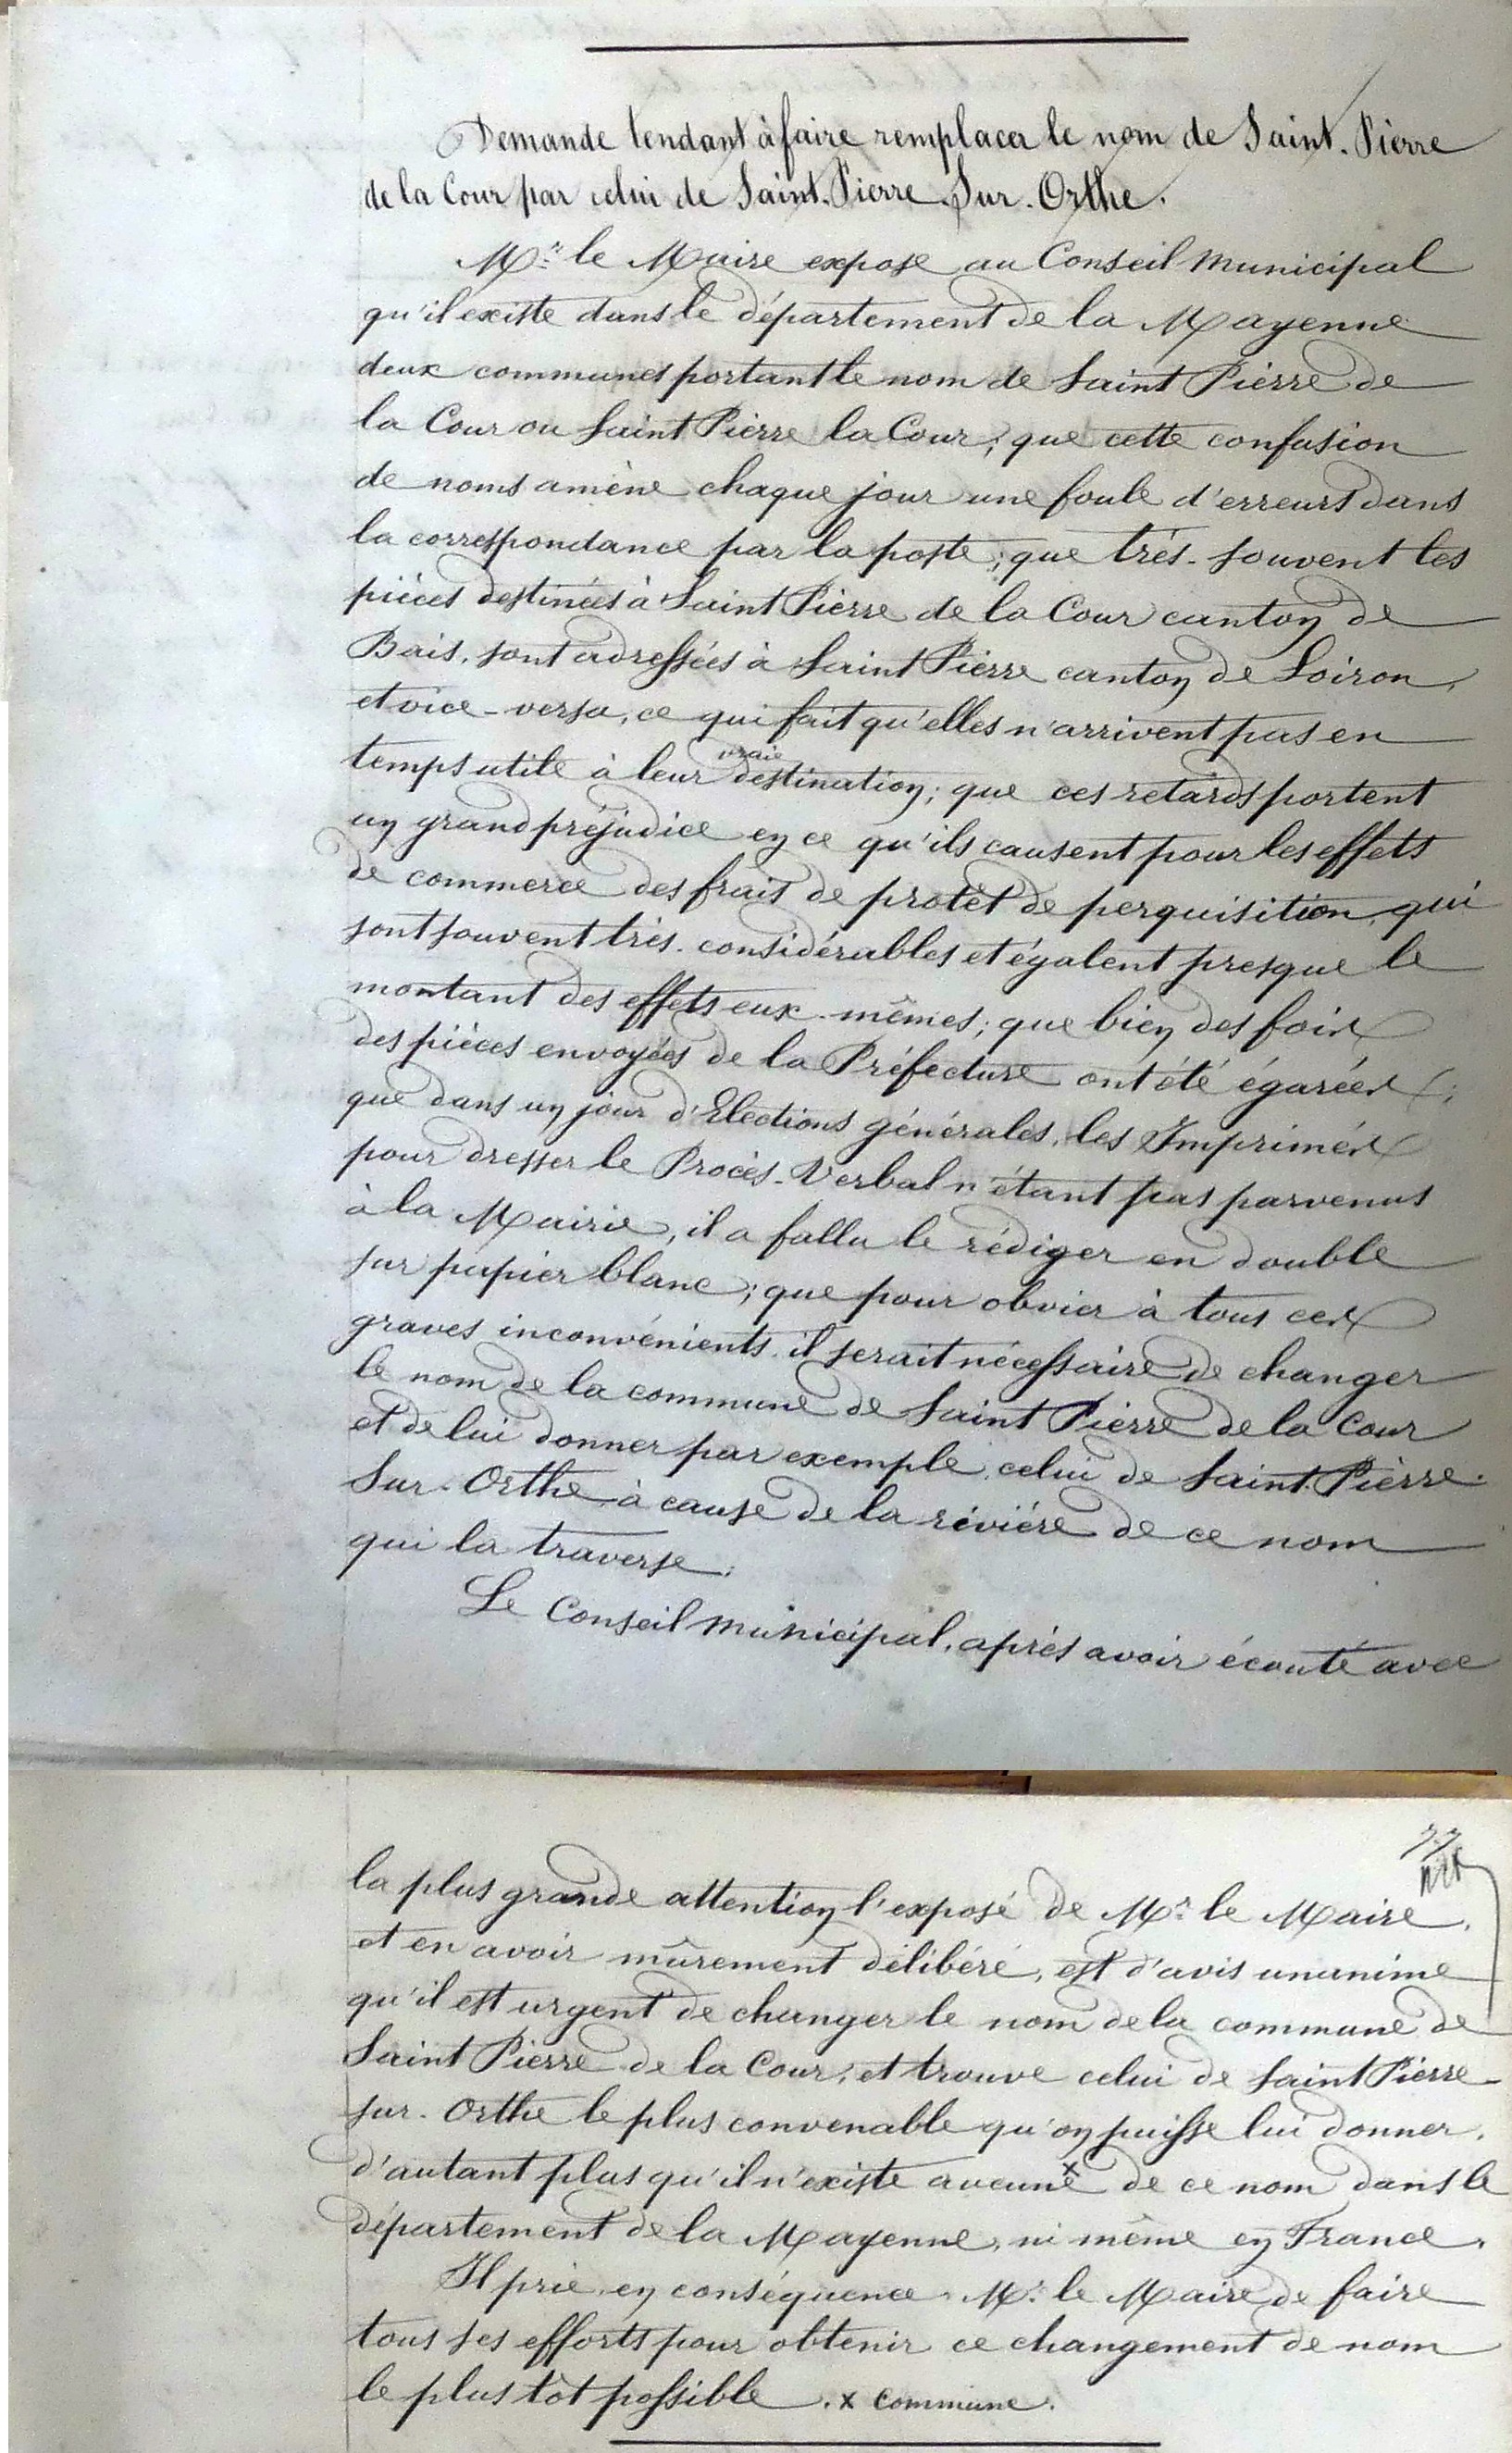 Demande tendant à faire remplacer le nom de Saint-Pierre
de la Cour par celui de Saint-Pierre-Sur-Orthe.
Mr le Maire expose au Conseil Municipal
qu'il existe dans le département de la Mayenne
deux communes portant le nom de Saint Pierre de
la Cour ou Saint Pierre la Cour; que cette confusion
de noms amène chaque jour une foule d'erreurs dans
la correspondance par la poste; que très-souvent les
pièces destinées à Saint Pierre de la Cour canton de
Bais, sont adressées à Saint Pierre canton de Loiron,
et vice-versa, ce qui fait qu'elles n'arrivent pas en
temps utile à leur vraie destination; que ces retards portent
un grand préjudice en ce qu'ils causent pour les effets
de commerce des frais de protêt de perquisition, qui
sont souvent très-considérables et égalent presque le
montant des effets eux-mêmes; que bien des fois
des pièces envoyées de la Préfecture ont été égarées;
que dans un jour d'Elections générales, les Imprimés
pour dresser le Procès-Verbal n'étant pas parvenus
à la Mairie, il a fallu le rédiger en double
sur papier blanc; que pour obvier à tous ces
graves inconvénients il serait nécessaire de changer
le nom de la commune de Saint Pierre de la Cour
et de lui donner par exemple, celui de Saint-Pierre-
Sur-Orthe à cause de la rivière de ce nom
qui la traverse.
Le Conseil Municipal, après avoir écouté avec
la plus grande attention l'exposé de Mr le Maire,
et en avoir mûrement délibéré, est d'avis unanime
qu'il est urgent de changer le nom de la commune de
Saint Pierre de la Cour, et trouve celui de Saint Pierre-
sur-Orthe le plus convenable qu'on puisse lui donner,
d'autant plus qu'il n'existe aucune x de ce nom dans le
département de la Mayenne, ni même en France.
Il prie, en conséquence Mr le Maire de faire
tous ses efforts pour obtenir ce changement de nom
le plus tôt possible. x commune.